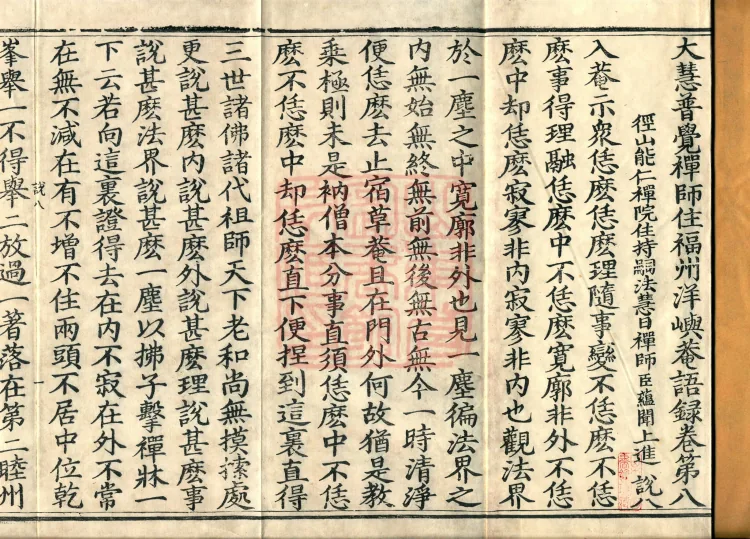 大慧普覺禪師住福州洋嶼菴語録卷第八
徑山能仁禪院住持嗣法慧日禪師臣蘊聞上進 說八
入菴示衆恁麽恁麽理隨事變不恁麽不恁
麽事得理融恁麽中不恁麽寬廓非外不恁
麽中却恁麽寂寥非内寂寥非内也觀法界
於一塵之中寬廓非外也見一塵徧法界之
内無始無終無前無後無古無今一時清淨
便恁麽去止宿草菴且在門外何故猶是教
乘極則未是衲僧本分事直須恁麽中不恁
麽不恁麽中却恁麽直下便揑到這裏直得
三世諸佛諸代祖師天下老和尚無摸𢱢處
更說甚麽内說甚麽外說甚麽理說甚麽事
說甚麽法界說甚麽一塵以拂子擊禪牀一
下云若向這裏證得去在内不寂在外不常
在無不減在有不增不住兩頭不居中位乾
說八 一
峯舉一不得舉二放過一著落在第二睦州